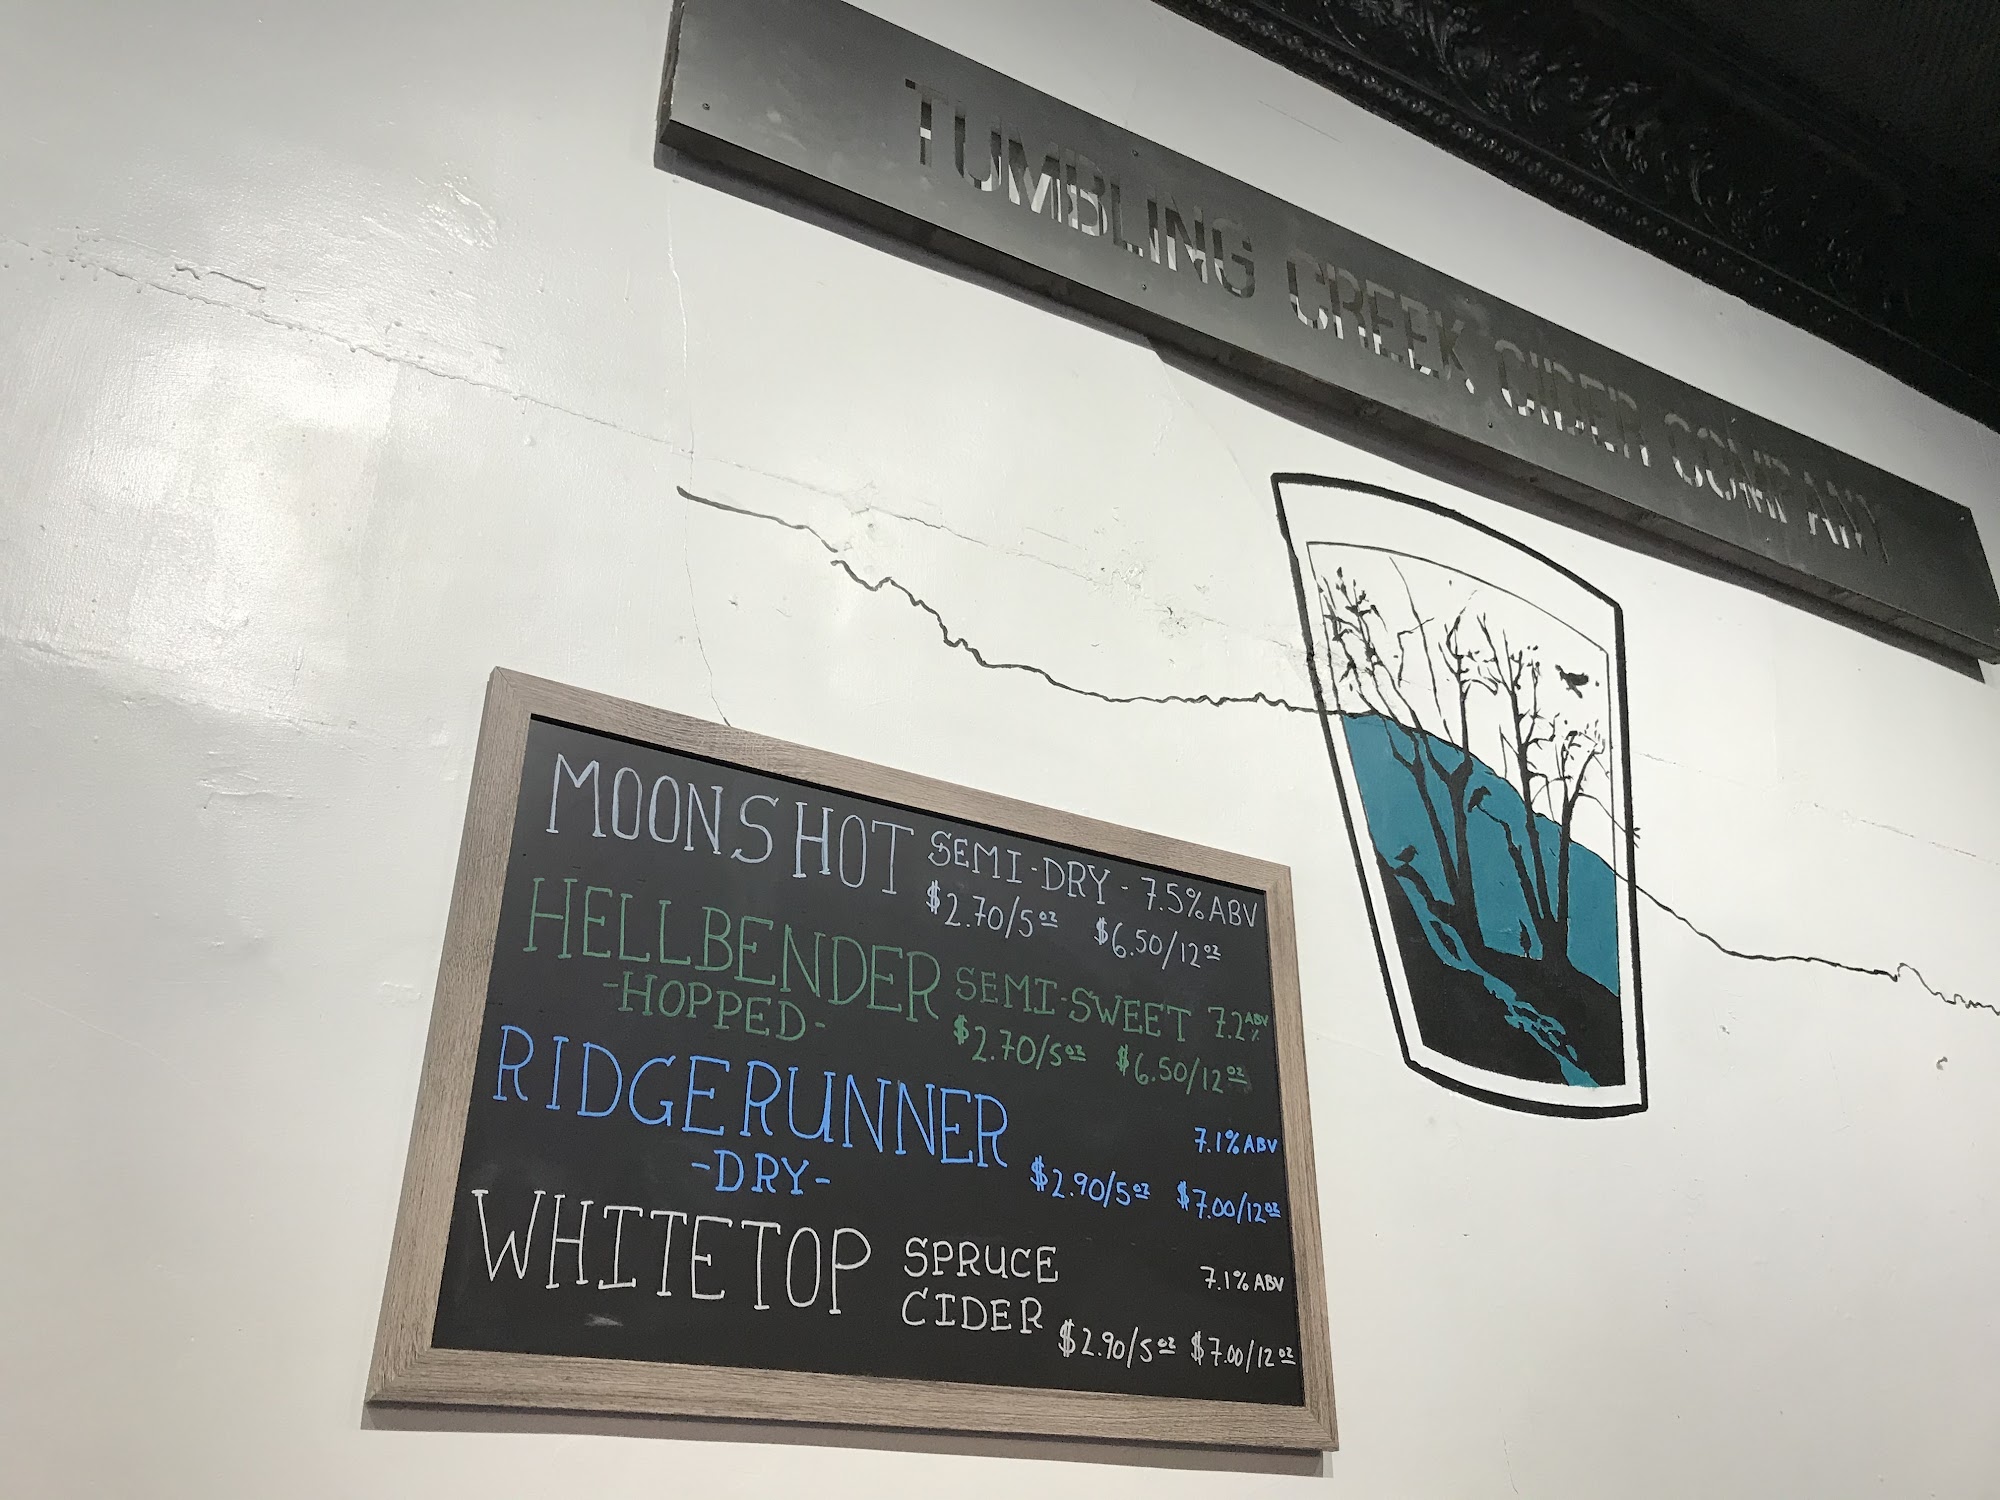 TUMBLING CREEK CIDER COMPANY
MOONSHOT SEMI-DRY - 7.5% ABV
$2.70/5oz $6.50/12oz
HELLBENDER SEMI-SWEET 7.2% ABV
-HOPPED- $2.70/5oz $6.50/12oz
RIDGERUNNER 7.1% ABV
-DRY- $2.90/5oz $7.00/12oz
WHITETOP SPRUCE CIDER 7.1% ABV
$2.90/5oz $7.00/12oz